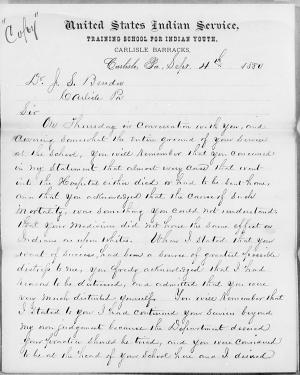 "Copy"
United States Indian Service,
TRAINING SCHOOL FOR INDIAN YOUTH,
CARLISLE BARRACKS,
Carlisle, Pa, Sept. 4th 1880
Dr. J. S. Bender
Carlisle Pa
Sir
On Thursday in Conversation with you, and
covering somewhat the entire ground of your Service
at the School, You will Remember that you concurred
in my Statement that almost every case that went
into the Hospital either died or had to be sent home,
and that you acknowledged that the Cause of Such
Mortality, was Something you could not understand.
that your Medicine did not have the same effect on
Indians as upon Whites. When I stated that your
want of Success, had been a Source of greatest possible
distress to me, you freely acknowledged that I had
reason to be distressed, and admitted that you were
very much disturbed yourself. You will Remember that
I stated to you I had continued your Services beyond
my own judgement because the Department desired
your practice should be tried, and you were considered
to be at the head of your School here and I desired